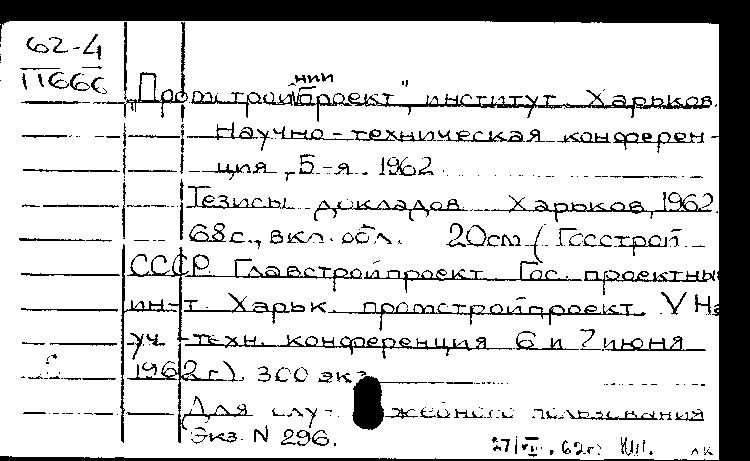 62-4
П666
нии
„Промстройпроект", институт. Харьков.
Научно-техническая конферен-
ция, 5-я. 1962
Тезисы докладов. Харьков, 1962.
68 с., вкл. обл. 20см (Госстрой
СССР. Главстройпроект. Гос. проектный
ин-т. Харьк. промстройпроект. V На
уч.-техн. конференция 6 и 7 июня
1962 г.). 300 экз.
Для слу-жебного пользования
Экз. N 296.
27/VI. 62г.